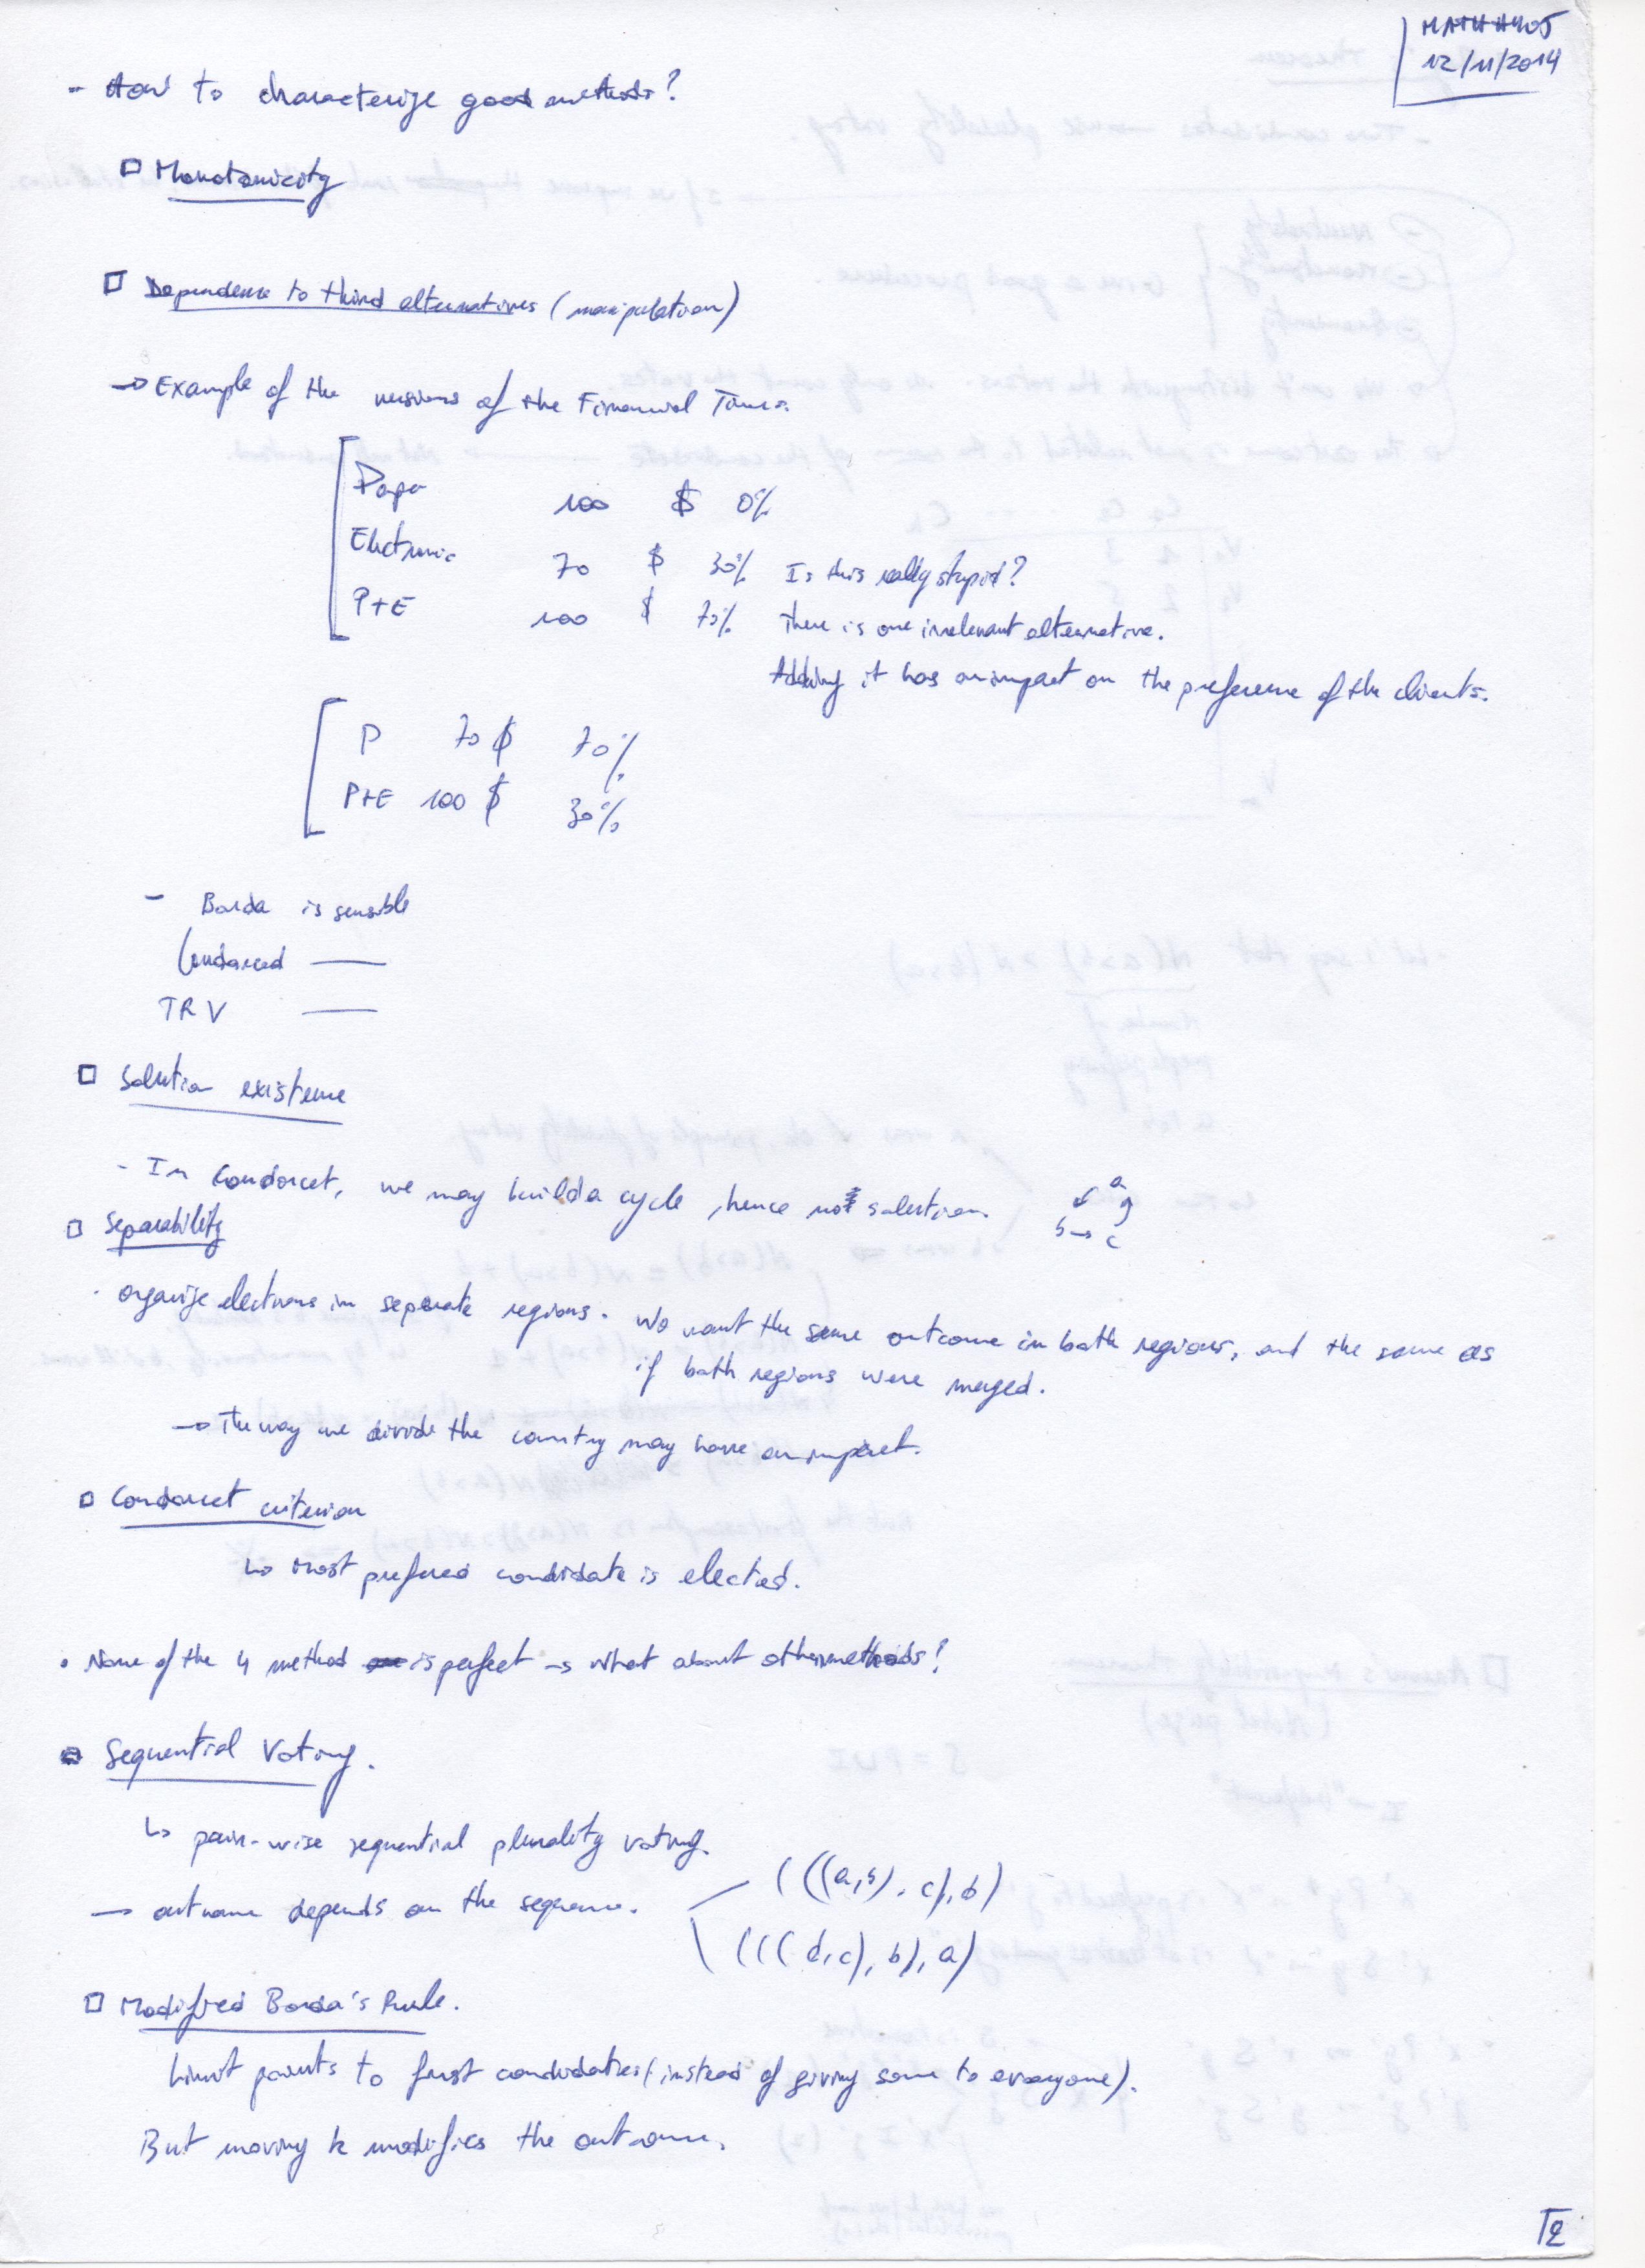 MATHH405
12/11/2014
- How to characterize good methods?
□ Monotonicity
□ Dependence to third alternatives (manipulation)
→ Example of the versions of the Financial Times.
Paper 100 $ 0%
Electronic 70 $ 30% Is this really stupid?
P+E 100 $ 70% There is one irrelevant alternative.
Adding it has an impact on the preference of the clients.
P 70 $ 70%
P+E 100 $ 30%
- Borda is sensible
Condorced —
TRV —
□ Solution existence
- In Condorcet, we may build a cycle, hence no solution.
a
b → c
□ Separability
· organize elections in separate regions. We want the same outcome in both regions, and the same as
if both regions were merged.
→ The way we divide the country may have an impact.
□ Condorcet criterion
↳ Most prefered candidate is elected.
• None of the 4 method is perfect → What about other methods?
□ Sequential Voting.
↳ pair-wise sequential plurality voting.
→ outcome depends on the sequence.
(((a,b), c), b)
(((d,c), b), a)
□ Modified Borda's Rule.
Limit points to first candidates (instead of giving some to everyone).
But moving k modifies the outcome.